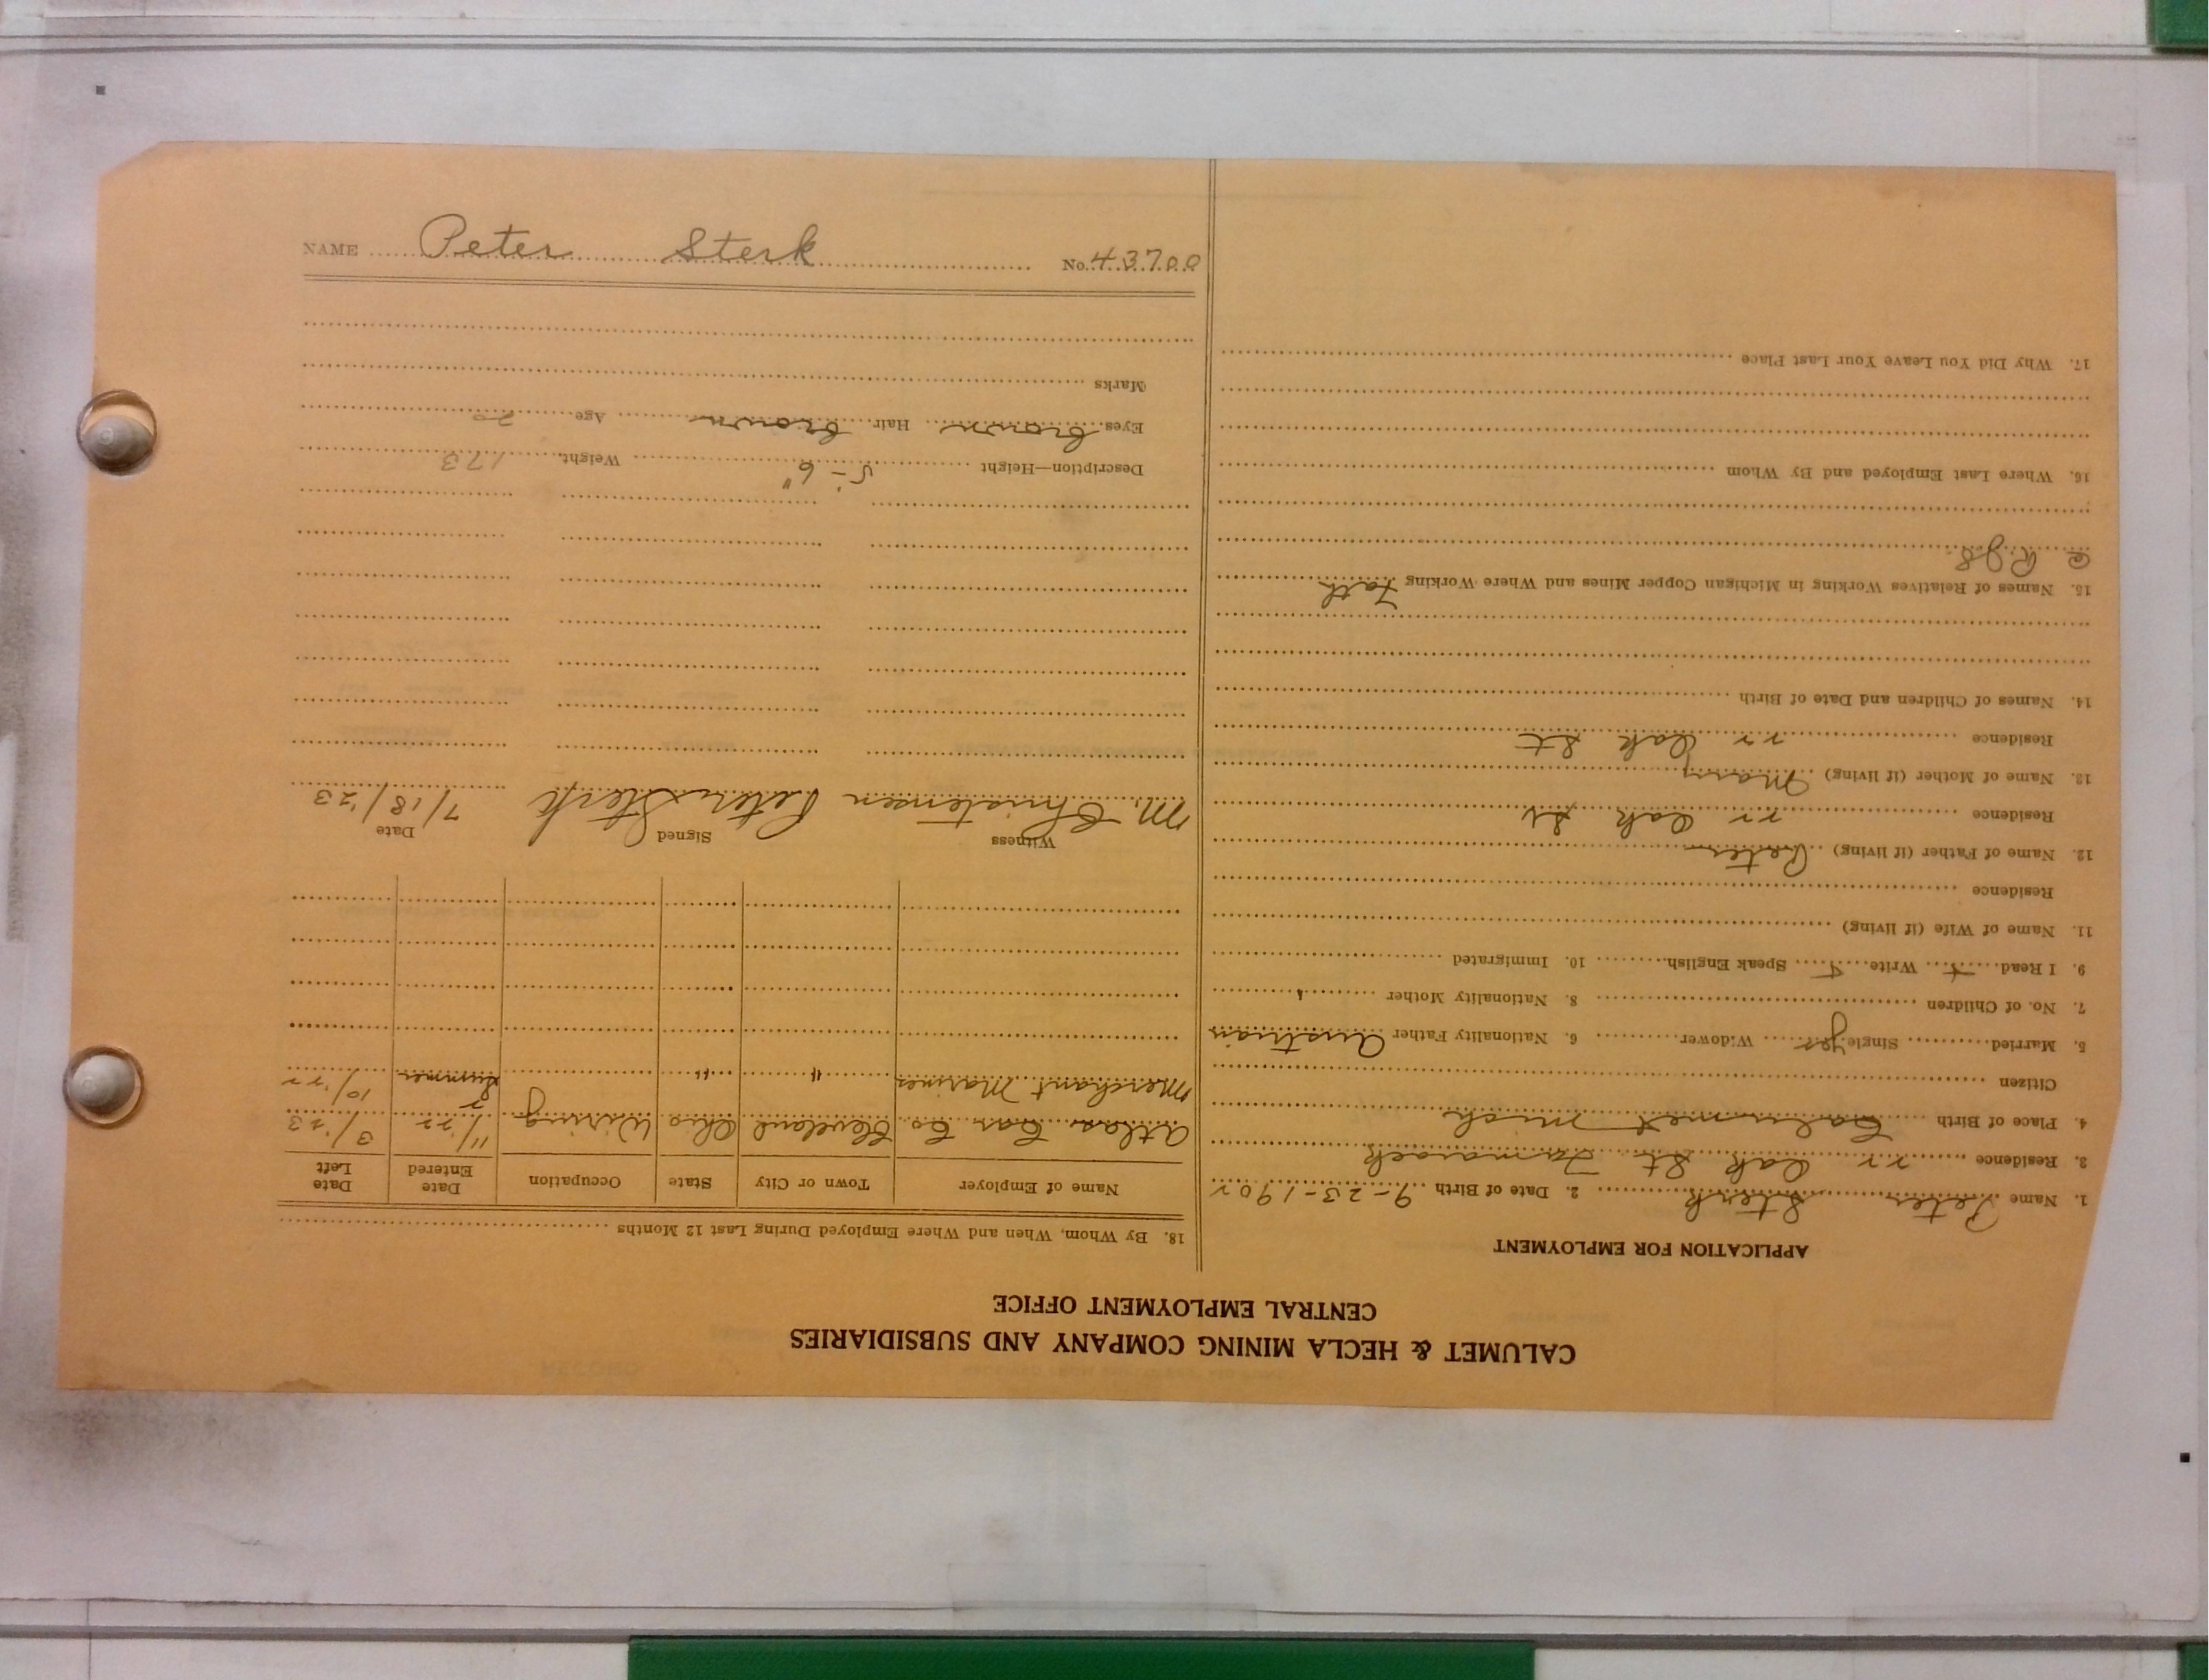 CALUMET & HECLA MINING COMPANY AND SUBSIDIARIES
CENTRAL EMPLOYMENT OFFICE
APPLICATION FOR EMPLOYMENT
1. Name Peter Sterk 2. Date of Birth 9-23-1902
3. Residence 22 Oak St Tamarack
4. Place of Birth Calumet Mich
Citizen
5. Married Single yes Widower 6. Nationality Father Austrian
7. No. of Children 8. Nationality Mother "
9. I Read Write Speak English 10. Immigrated
11. Name of Wife (if living)
Residence
12. Name of Father (if living) Peter
Residence 22 Oak St
13. Name of Mother (if living) Mary
Residence 22 Oak St
14. Names of Children and Date of Birth
15. Names of Relatives Working in Michigan Copper Mines and Where Working Fath
16. Where Last Employed and By Whom
17. Why Did You Leave Your Last Place
18. By Whom, When and Where Employed During Last 12 Months
Name of Employer Town or City State Occupation Date Entered Date Left
Atlas Car Co Cleveland Ohio Wiring 11/22 3/23
Merchant Marines " " Summer 22 10/22
Witness Signed Date
M. Christensen Peter Sterk 7/18/23
Description—Height 5'-6" Weight 173
Eyes brown Hair brown Age 20
Marks
NAME Peter Sterk No. 43700